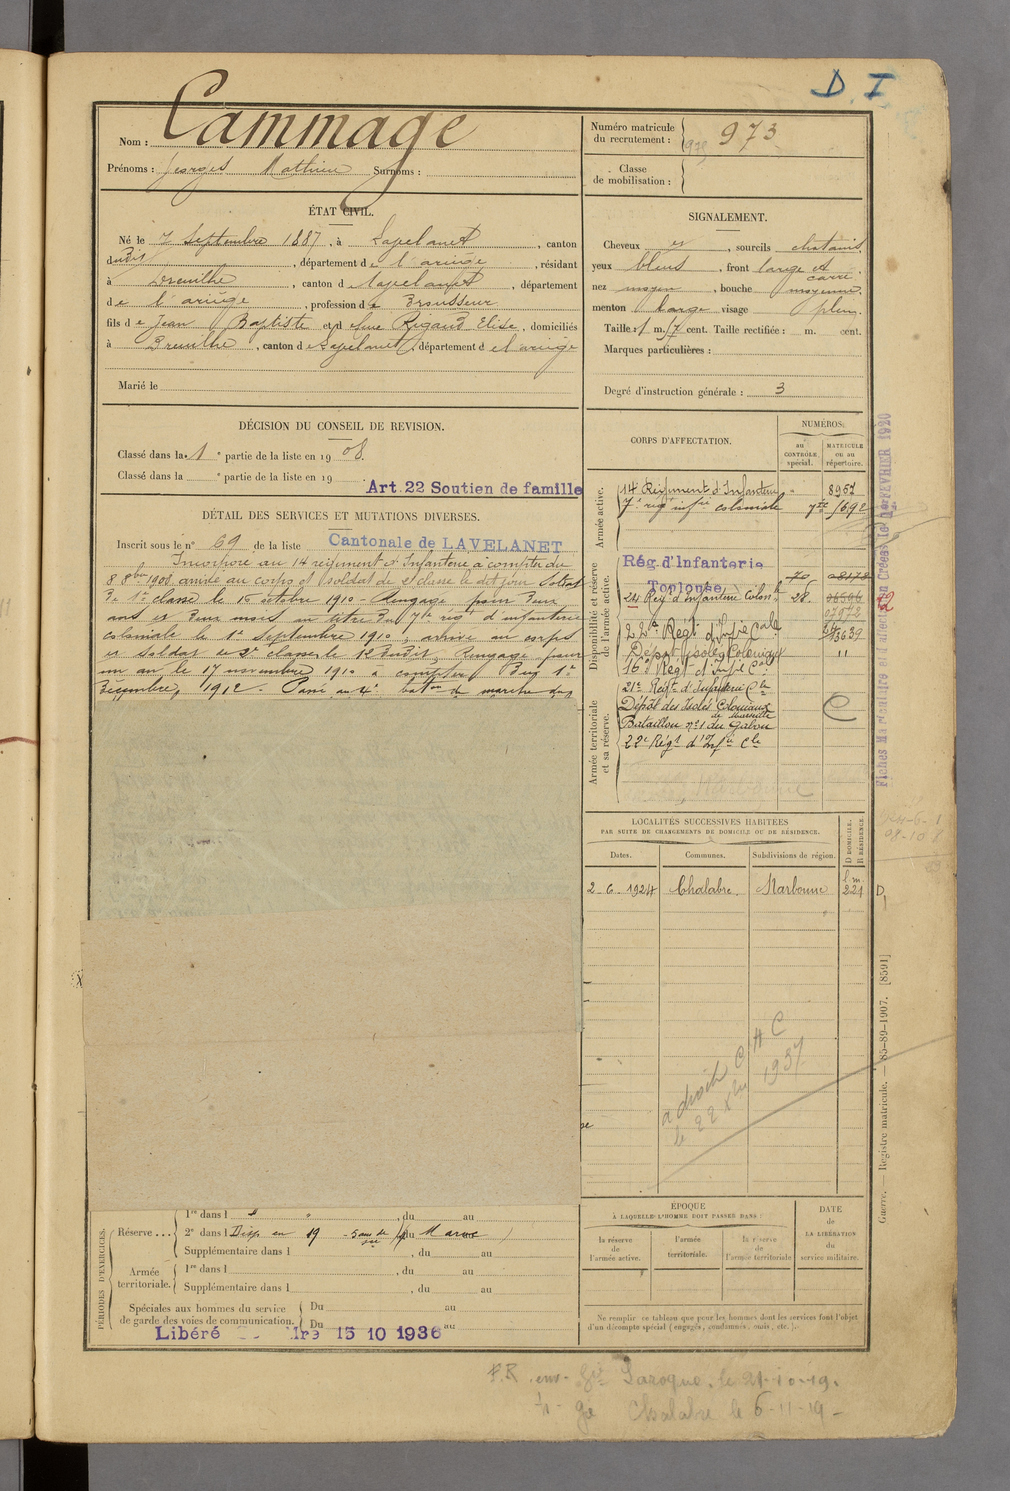 D. I
Nom : Cammage
Prénoms : Georges Mathieu Surnoms :
Numéro matricule du recrutement : 973
Classe de mobilisation :
ÉTAT CIVIL.
Né le 7 Septembre 1887, à Lavelanet, canton
dudit, département de l'ariège, résidant
à Dreuilhe, canton de Lavelanet, département
de l'ariège, profession de Brousseur
fils de Jean Baptiste et de feue Rigaud Elise, domiciliés
à Dreuilhe, canton de Lavelanet, département de l'ariège
Marié le
SIGNALEMENT.
Cheveux et, sourcils chatains,
yeux bleus, front large et carré,
nez moyen, bouche moyenne,
menton large visage plein.
Taille : 1 m. 57 cent. Taille rectifiée : m. cent.
Marques particulières :
Degré d'instruction générale : 3
DÉCISION DU CONSEIL DE REVISION.
Classé dans la 1e partie de la liste en 1908.
Classé dans la e partie de la liste en 19
Art. 22 Soutien de famille
DÉTAIL DES SERVICES ET MUTATIONS DIVERSES.
Inscrit sous le n° 69 de la liste Cantonale de LAVELANET
Incorporé au 14 régiment d'Infanterie à compter du
8 8bre 1908. arrivé au corps et soldat de 2e classe le dit jour Soldat
de 1re classe le 15 octobre 1910 - Rengagé pour deux
ans et deux mois au titre du 7e régt d'infanterie
coloniale le 1er Septembre 1910, arrivé au corps
et Soldat de 2e classe le 12 dudit, Rengagé pour
un an le 17 novembre 1910 à compter du 1er
Décembre, 1912 - Passé au 4e baton de marche des
CORPS D'AFFECTATION.
NUMÉROS:
au CONTRÔLE spécial.
MATRICULE ou au répertoire.
Armée active.
14e Régiment d'Infanterie " 8967
7e régt infie coloniale 7te 1692
Disponibilité et réserve de l'armée active.
Rég. d'Infanterie
Toulouse
24 Reg d'Infanterie Colonle 28.
22e Régt d'Infie Cale 13639
Dépôt Isolés Coloniaux "
16e Régt d'Infie Cale
21e Régt d'Infanterie Cle
Armée territoriale et sa réserve.
Dépôt des Isolés Coloniaux
de Marseille
Bataillon n°1 du Gabon
22e Régt d'Infie Cle
C
LOCALITÉS SUCCESSIVES HABITÉES
PAR SUITE DE CHANGEMENTS DE DOMICILE OU DE RÉSIDENCE.
Dates. Communes. Subdivisions de région. D DOMICILE. R RÉSIDENCE.
2-6-1924 Chalabre. Narbonne 221 D
a droit C H C
le 22 Xbre 1937
PÉRIODES D'EXERCICES.
Réserve ...
1re dans l " " , du au
2e dans l Disp. en 19 (du Maroc)
Supplémentaire dans l , du au
Armée territoriale.
1re dans l , du au
Supplémentaire dans l , du au
Spéciales aux hommes du service de garde des voies de communication.
Du au
Du au
Libéré 15 10 1936
ÉPOQUE
À LAQUELLE L'HOMME DOIT PASSER DANS :
la réserve de l'armée active.
l'armée territoriale.
la réserve de l'armée territoriale
DATE de LA LIBÉRATION du service militaire.
Ne remplir ce tableau que pour les hommes dont les services font l'objet
d'un décompte spécial (engagés, condamnés, omis, etc.).
Guerre. — Registre matricule. — 85-89-1907. [8591]
F.R. env. Gie Laroque. le 21-10-19.
Gie Chalabre le 6-11-19 -